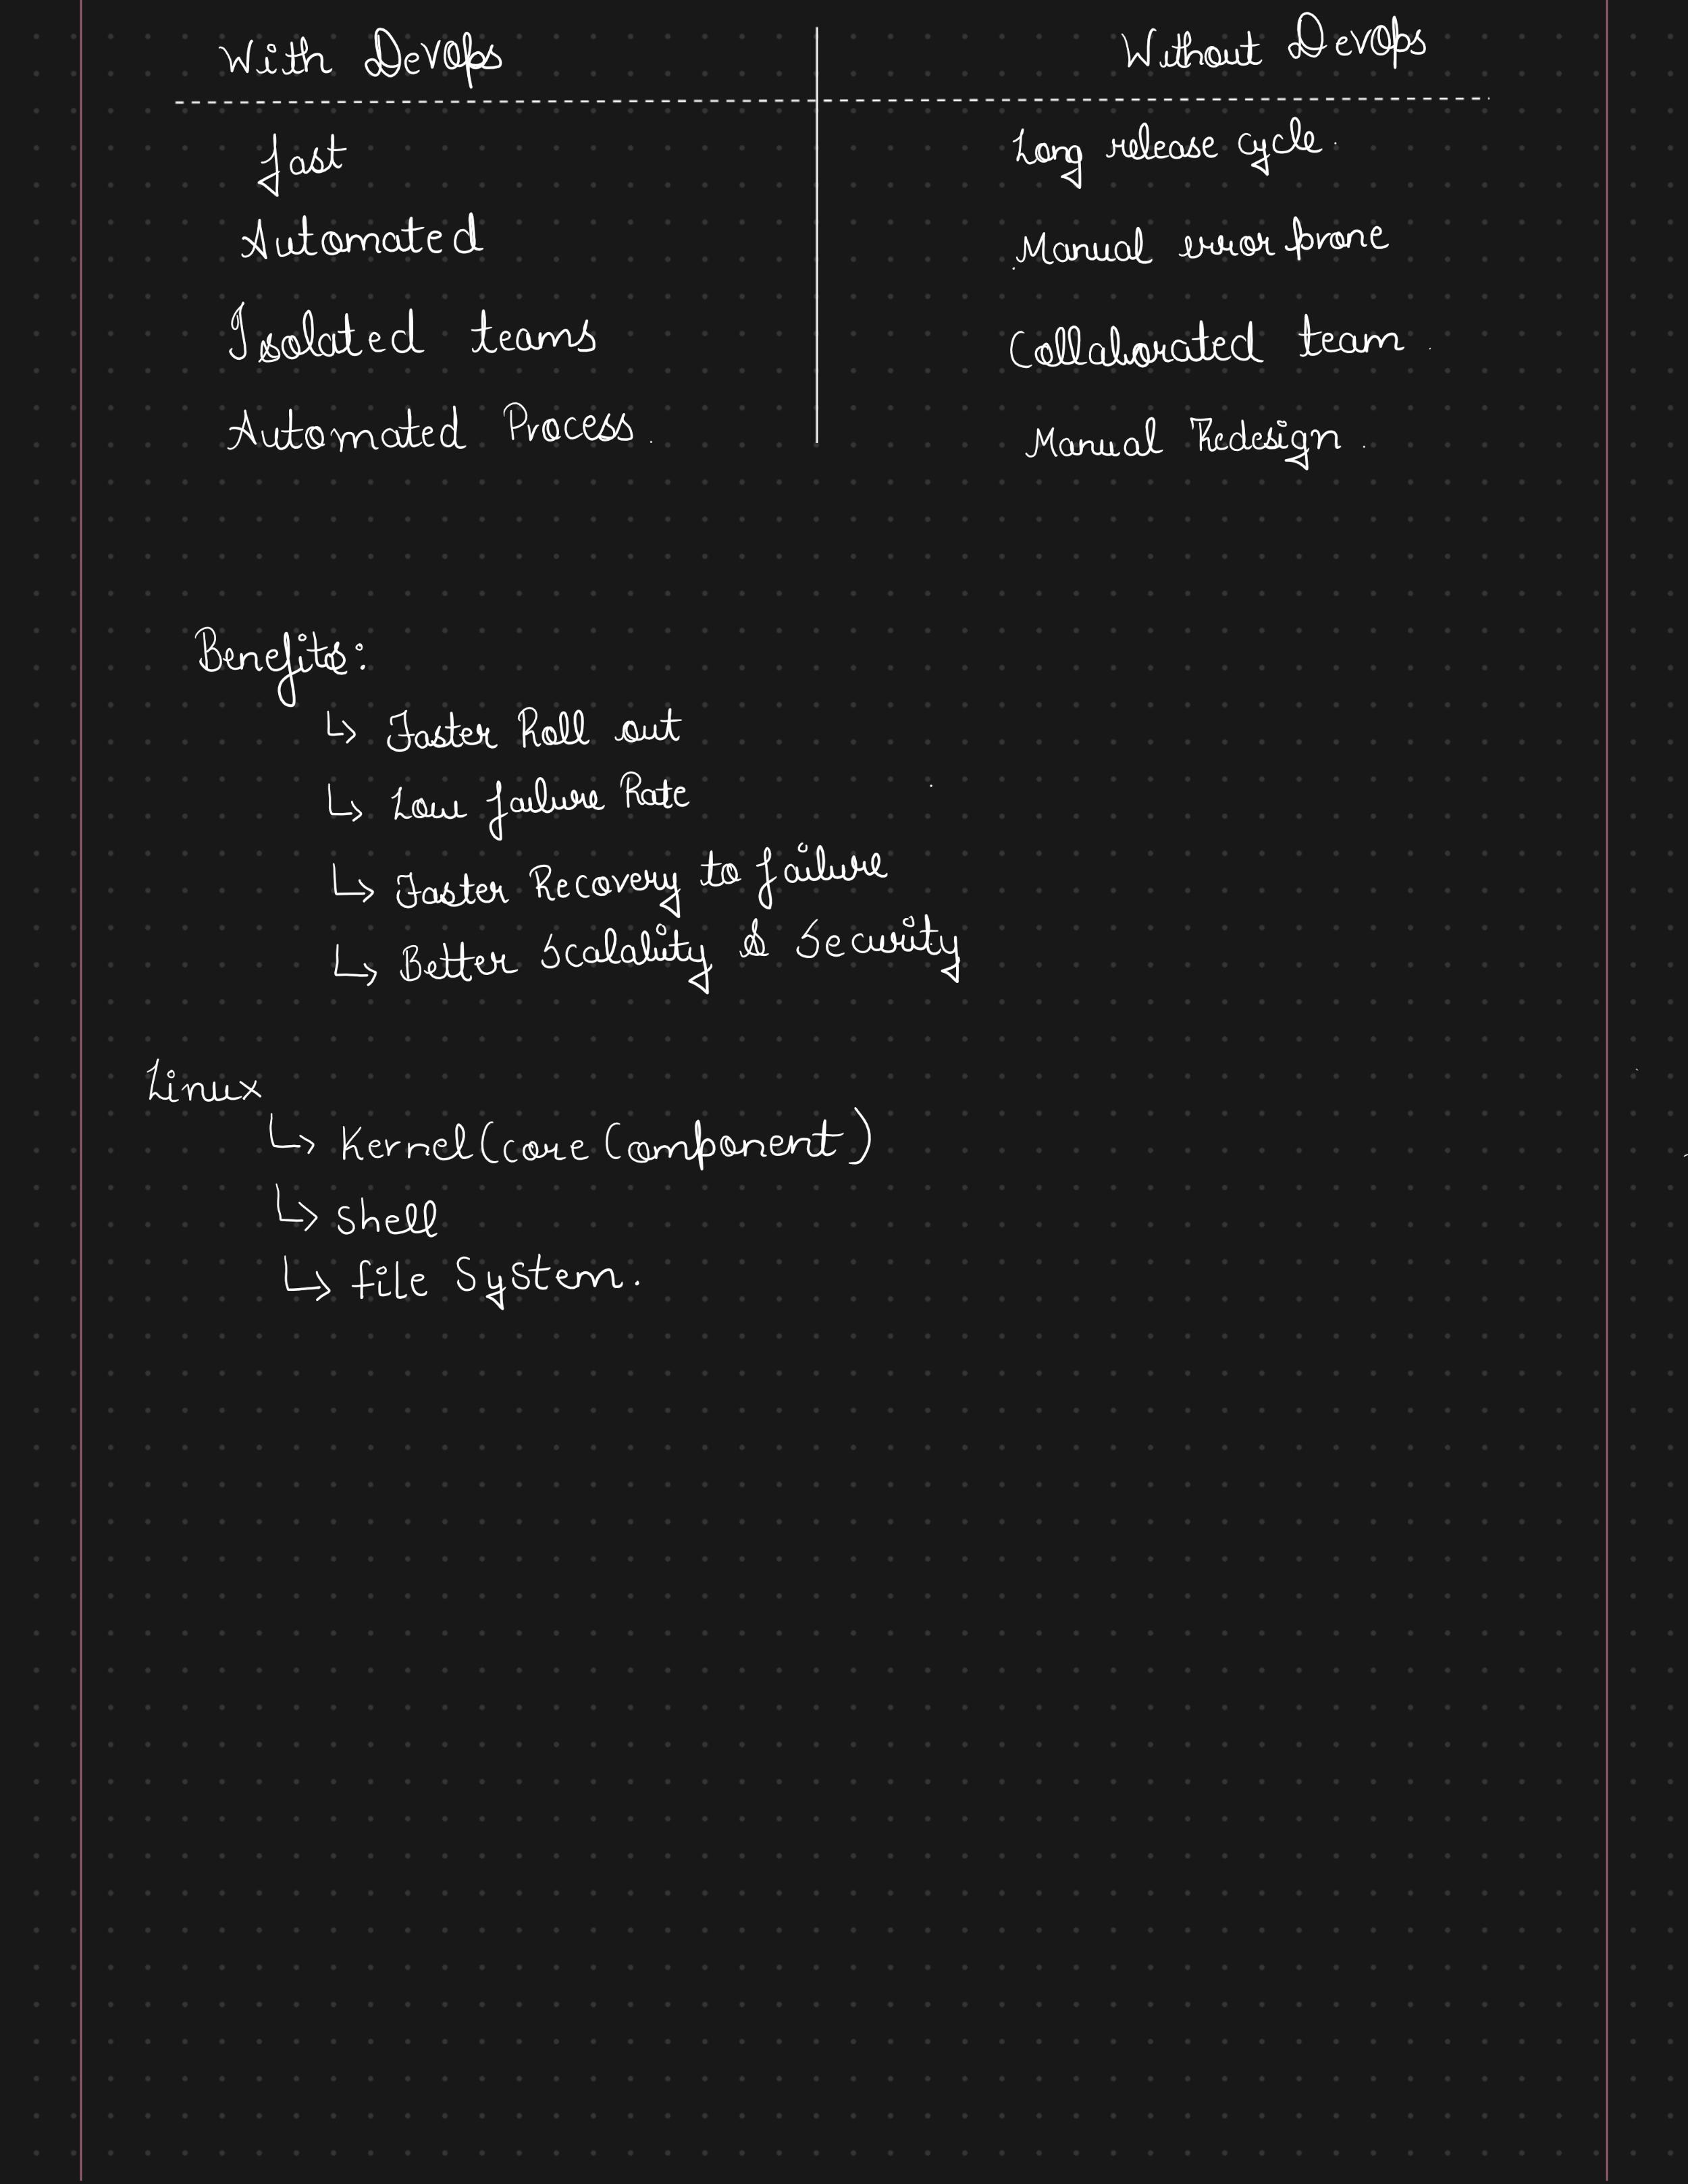 With DevOps Without DevOps
fast Long release cycle.
Automated Manual error prone
Isolated teams Collaborated team.
Automated Process. Manual Redesign.
Benefits:
↳ Faster Roll out
↳ Low failure Rate
↳ Faster Recovery to failure
↳ Better Scalability & Security
Linux
↳ Kernel (core Component)
↳ Shell
↳ file System.